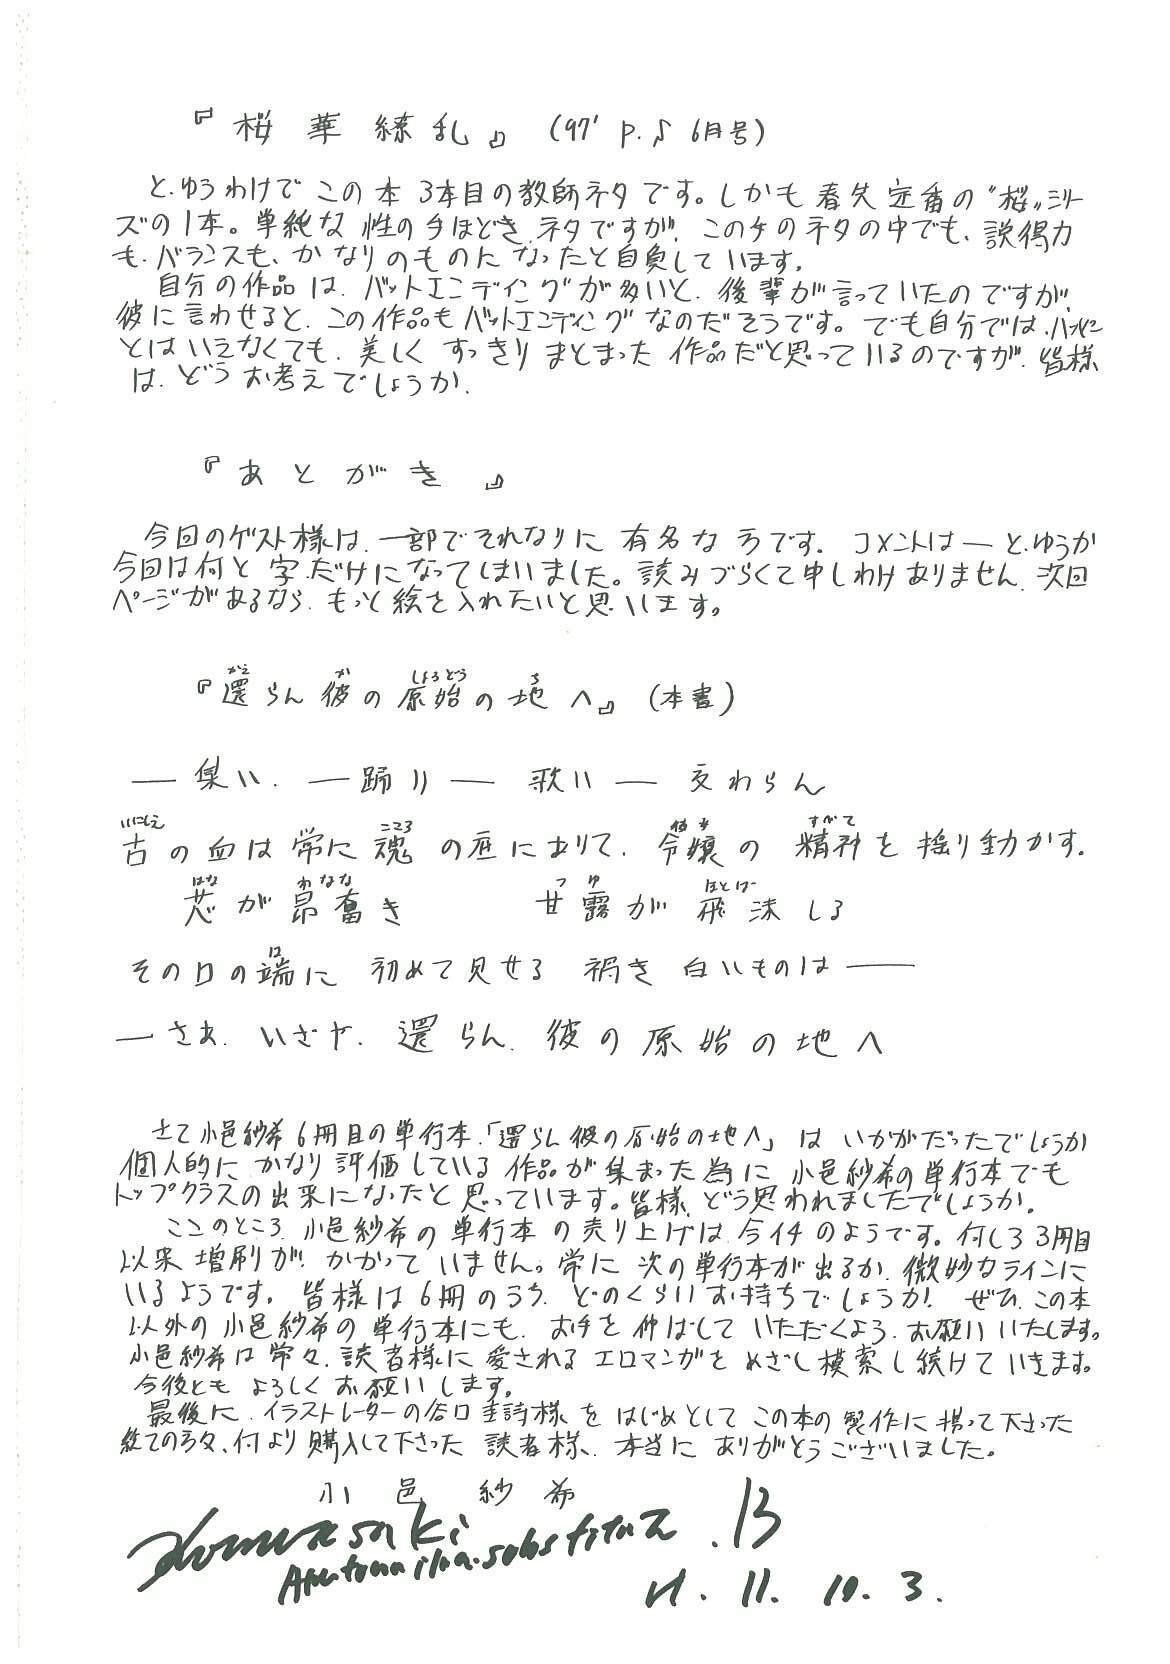 『桜華繚乱』(97' P.♪ 6月号)
と、ゆうわけで この本 3本目の教師ネタです。しかも 春先定番の〝桜〟シリー
ズの1本。単純な 性の手ほどき ネタですが、この手のネタの中でも、説得力
も、バランスも、かなりのものになったと自負しています。
自分の作品は、バットエンディングが多いと、後輩が言っていたのですが、
彼に言わせると、この作品もバットエンディングなのだそうです。でも自分では、ハッピー
とはいえなくても、美しく すっきり まとまった 作品だと思っているのですが、皆様
は、どうお考えでしょうか、
『あとがき』
今回のゲスト様は、一部でそれなりに 有名な方です。コメントは― と、ゆうか
今回は何と 字だけになってしまいました。読みづらくて申しわけありません、次回
ページがあるなら、もっと絵を入れたいと思います。
『還らん彼の原始の地へ』(本書)
かえ か しょろどう ち
― 集い、― 踊り ― 歌い ― 交わらん
古の血は常に魂の底にありて、令嬢の 精神を揺り動かす、
いにしえ こころ すべて
芯が昂奮き 甘露が 飛沫しる
はな わなな つゆ ほとばし
その口の端に 初めて見せる 禍き 白いものは――
は
― さあ、いざや、還らん、彼の原始の地へ
さて小邑紗希6冊目の単行本、「還らん彼の原始の地へ」は いかがだったでしょうか
個人的に かなり評価している 作品が集まった為に 小邑紗希の単行本でも
トップクラスの出来になったと思っています。皆様、どう思われましたでしょうか、
ここのところ、小邑紗希の単行本の売り上げは、今イチのようです。何しろ3冊目
以来 増刷が かかって いません。常に 次の単行本が出るか、微妙なラインに
いるようです。皆様は6冊のうち、どのくらいお持ちでしょうか! ぜひ、この本
以外の 小邑紗希の単行本にも、お手を伸ばして いただくよう、お願い いたします。
小邑紗希は常々、読者様に愛されるエロマンガをめざし模索し続けていきます。
今後とも よろしく お願いします。
最後に、イラストレーターの谷口圭詩様をはじめとして この本の製作に携って下さった
総ての方々、何より購入して下さった 読者様、本当に ありがとうございました。
小邑 紗希
H. 11. 10. 3.